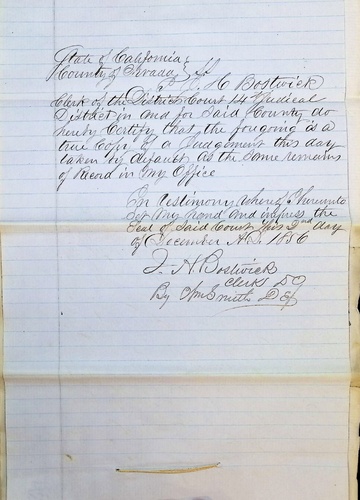 State of California }
County of Nevada } SS
I J. H. Bostwick
Clerk of the District Court 14th Judicial
District in and for Said County do
hereby Certify that the forgoing is a
true Copy of a Judgement this day
taken by default as the Same remains
of Record in my Office
In testimony whereof I hereunto
Set My Hand and impress the
Seal of Said Court this 2nd day
of December A.D. 1856
J. H. Bostwick
Clerk DC
By Wm Smith Dep